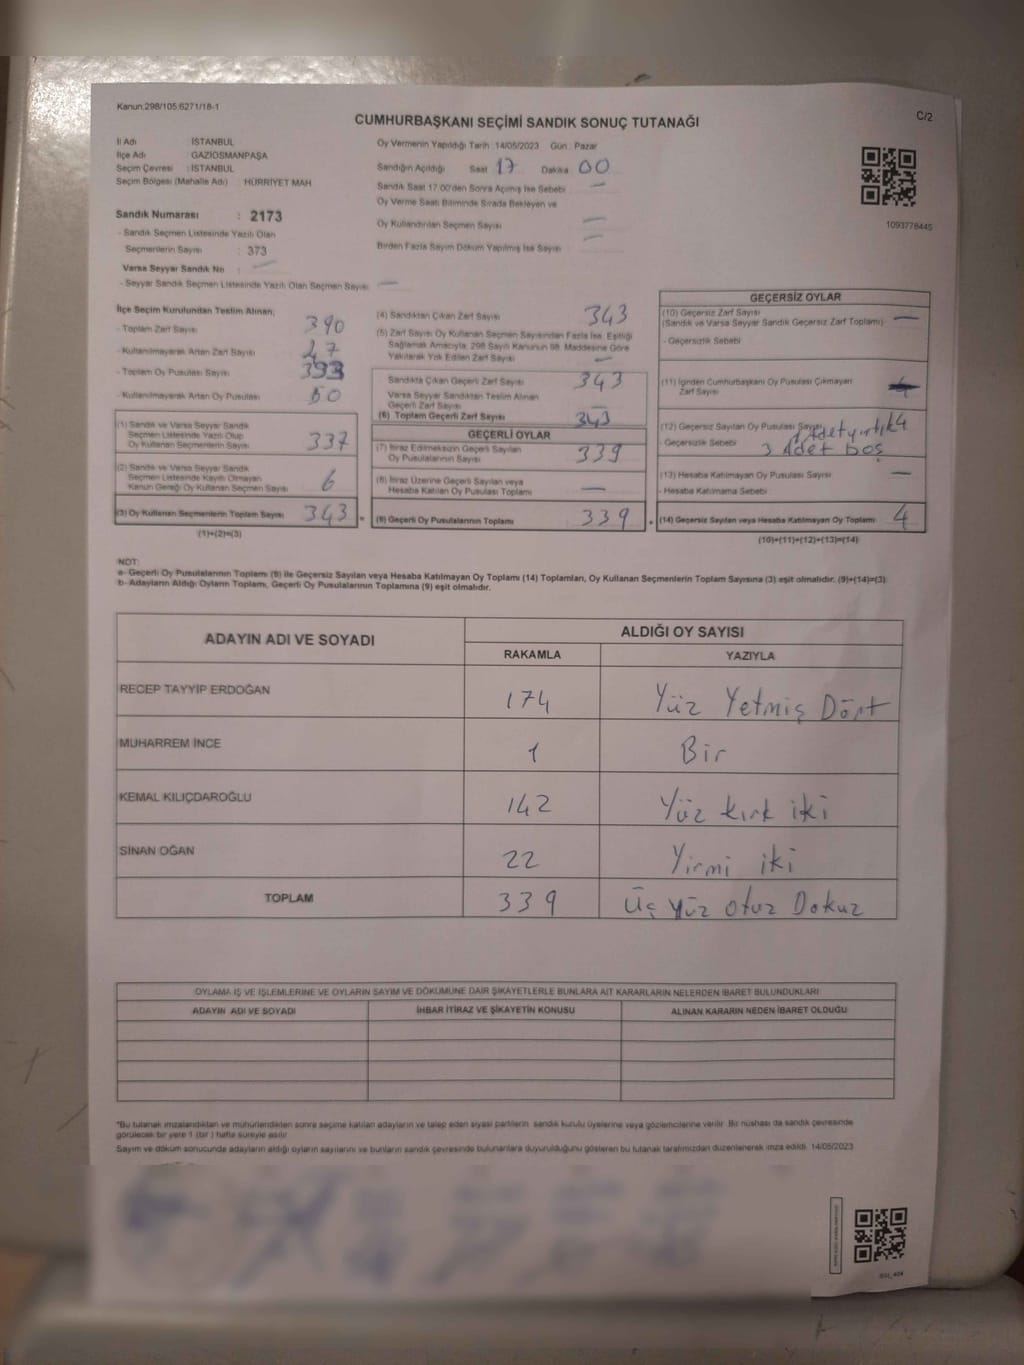 Kanun.298/105.6271/18-1
C/2
CUMHURBAŞKANI SEÇİMİ SANDIK SONUÇ TUTANAĞI
İl Adı : İSTANBUL
İlçe Adı : GAZİOSMANPAŞA
Seçim Çevresi : İSTANBUL
Seçim Bölgesi (Mahalle Adı) : HÜRRİYET MAH
Sandık Numarası : 2173
- Sandık Seçmen Listesinde Yazılı Olan
Seçmenlerin Sayısı : 373
Varsa Seyyar Sandık No : —
- Seyyar Sandık Seçmen Listesinde Yazılı Olan Seçmen Sayısı —
Oy Vermenin Yapıldığı Tarih :14/05/2023 Gün : Pazar
Sandığın Açıldığı Saat 17 Dakika 00
Sandık Saat 17.00'den Sonra Açılmış İse Sebebi —
Oy Verme Saati Bitiminde Sırada Bekleyen ve
Oy Kullandırılan Seçmen Sayısı —
Birden Fazla Sayım Döküm Yapılmış İse Sayısı —
1093778445
İlçe Seçim Kurulundan Teslim Alınan;
- Toplam Zarf Sayısı 390
- Kullanılmayarak Artan Zarf Sayısı 47
- Toplam Oy Pusulası Sayısı 393
- Kullanılmayarak Artan Oy Pusulası 50
(1) Sandık ve Varsa Seyyar Sandık
Seçmen Listesinde Yazılı Olup
Oy Kullanan Seçmenlerin Sayısı 337
(2) Sandık ve Varsa Seyyar Sandık
Seçmen Listesinde Kayıtlı Olmayan
Kanun Gereği Oy Kullanan Seçmen Sayısı 6
(3) Oy Kullanan Seçmenlerin Toplam Sayısı 343
(1)+(2)=(3)
(4) Sandıktan Çıkan Zarf Sayısı 343
(5) Zarf Sayısı Oy Kullanan Seçmen Sayısından Fazla İse, Eşitliği
Sağlamak Amacıyla, 298 Sayılı Kanunun 98. Maddesine Göre
Yakılarak Yok Edilen Zarf Sayısı —
Sandıkta Çıkan Geçerli Zarf Sayısı 343
Varsa Seyyar Sandıktan Teslim Alınan
Geçerli Zarf Sayısı —
(6) Toplam Geçerli Zarf Sayısı 343
GEÇERLİ OYLAR
(7) İtiraz Edilmeksizin Geçerli Sayılan
Oy Pusulalarının Sayısı 339
(8) İtiraz Üzerine Geçerli Sayılan veya
Hesaba Katılan Oy Pusulası Toplamı —
(9) Geçerli Oy Pusulalarının Toplamı 339
GEÇERSİZ OYLAR
(10) Geçersiz Zarf Sayısı
(Sandık ve Varsa Seyyar Sandık Geçersiz Zarf Toplamı) —
- Geçersizlik Sebebi
(11) İçinden Cumhurbaşkanı Oy Pusulası Çıkmayan
Zarf Sayısı
(12) Geçersiz Sayılan Oy Pusulası Sayısı 4
- Geçersizlik Sebebi 1 Adet yırtık
3 Adet boş
(13) Hesaba Katılmayan Oy Pusulası Sayısı —
- Hesaba Katılmama Sebebi
(14) Geçersiz Sayılan veya Hesaba Katılmayan Oy Toplamı 4
(10)+(11)+(12)+(13)=(14)
NOT:
a- Geçerli Oy Pusulalarının Toplamı (9) ile Geçersiz Sayılan veya Hesaba Katılmayan Oy Toplamı (14) Toplamları, Oy Kullanan Seçmenlerin Toplam Sayısına (3) eşit olmalıdır. (9)+(14)=(3)
b- Adayların Aldığı Oyların Toplamı, Geçerli Oy Pusulalarının Toplamına (9) eşit olmalıdır.
ADAYIN ADI VE SOYADI
ALDIĞI OY SAYISI
RAKAMLA YAZIYLA
RECEP TAYYİP ERDOĞAN 174 Yüz Yetmiş Dört
MUHARREM İNCE 1 Bir
KEMAL KILIÇDAROĞLU 142 Yüz kırk iki
SİNAN OĞAN 22 Yirmi iki
TOPLAM 339 Üç Yüz Otuz Dokuz
OYLAMA İŞ VE İŞLEMLERİNE VE OYLARIN SAYIM VE DÖKÜMÜNE DAİR ŞİKAYETLERLE BUNLARA AİT KARARLARIN NELERDEN İBARET BULUNDUKLARI
ADAYIN ADI VE SOYADI İHBAR İTİRAZ VE ŞİKAYETİN KONUSU ALINAN KARARIN NEDEN İBARET OLDUĞU
*Bu tutanak imzalandıktan ve mühürlendikten sonra seçime katılan adayların ve talep eden siyasi partilerin sandık kurulu üyelerine veya gözlemcilerine verilir. Bir nüshası da sandık çevresinde
görülecek bir yere 1 (bir ) hafta süreyle asılır
Sayım ve döküm sonucunda adayların aldığı oyların sayılarını ve bunların sandık çevresinde bulunanlara duyurulduğunu gösteren bu tutanak tarafımızdan düzenlenerek imza edildi. 14/05/2023